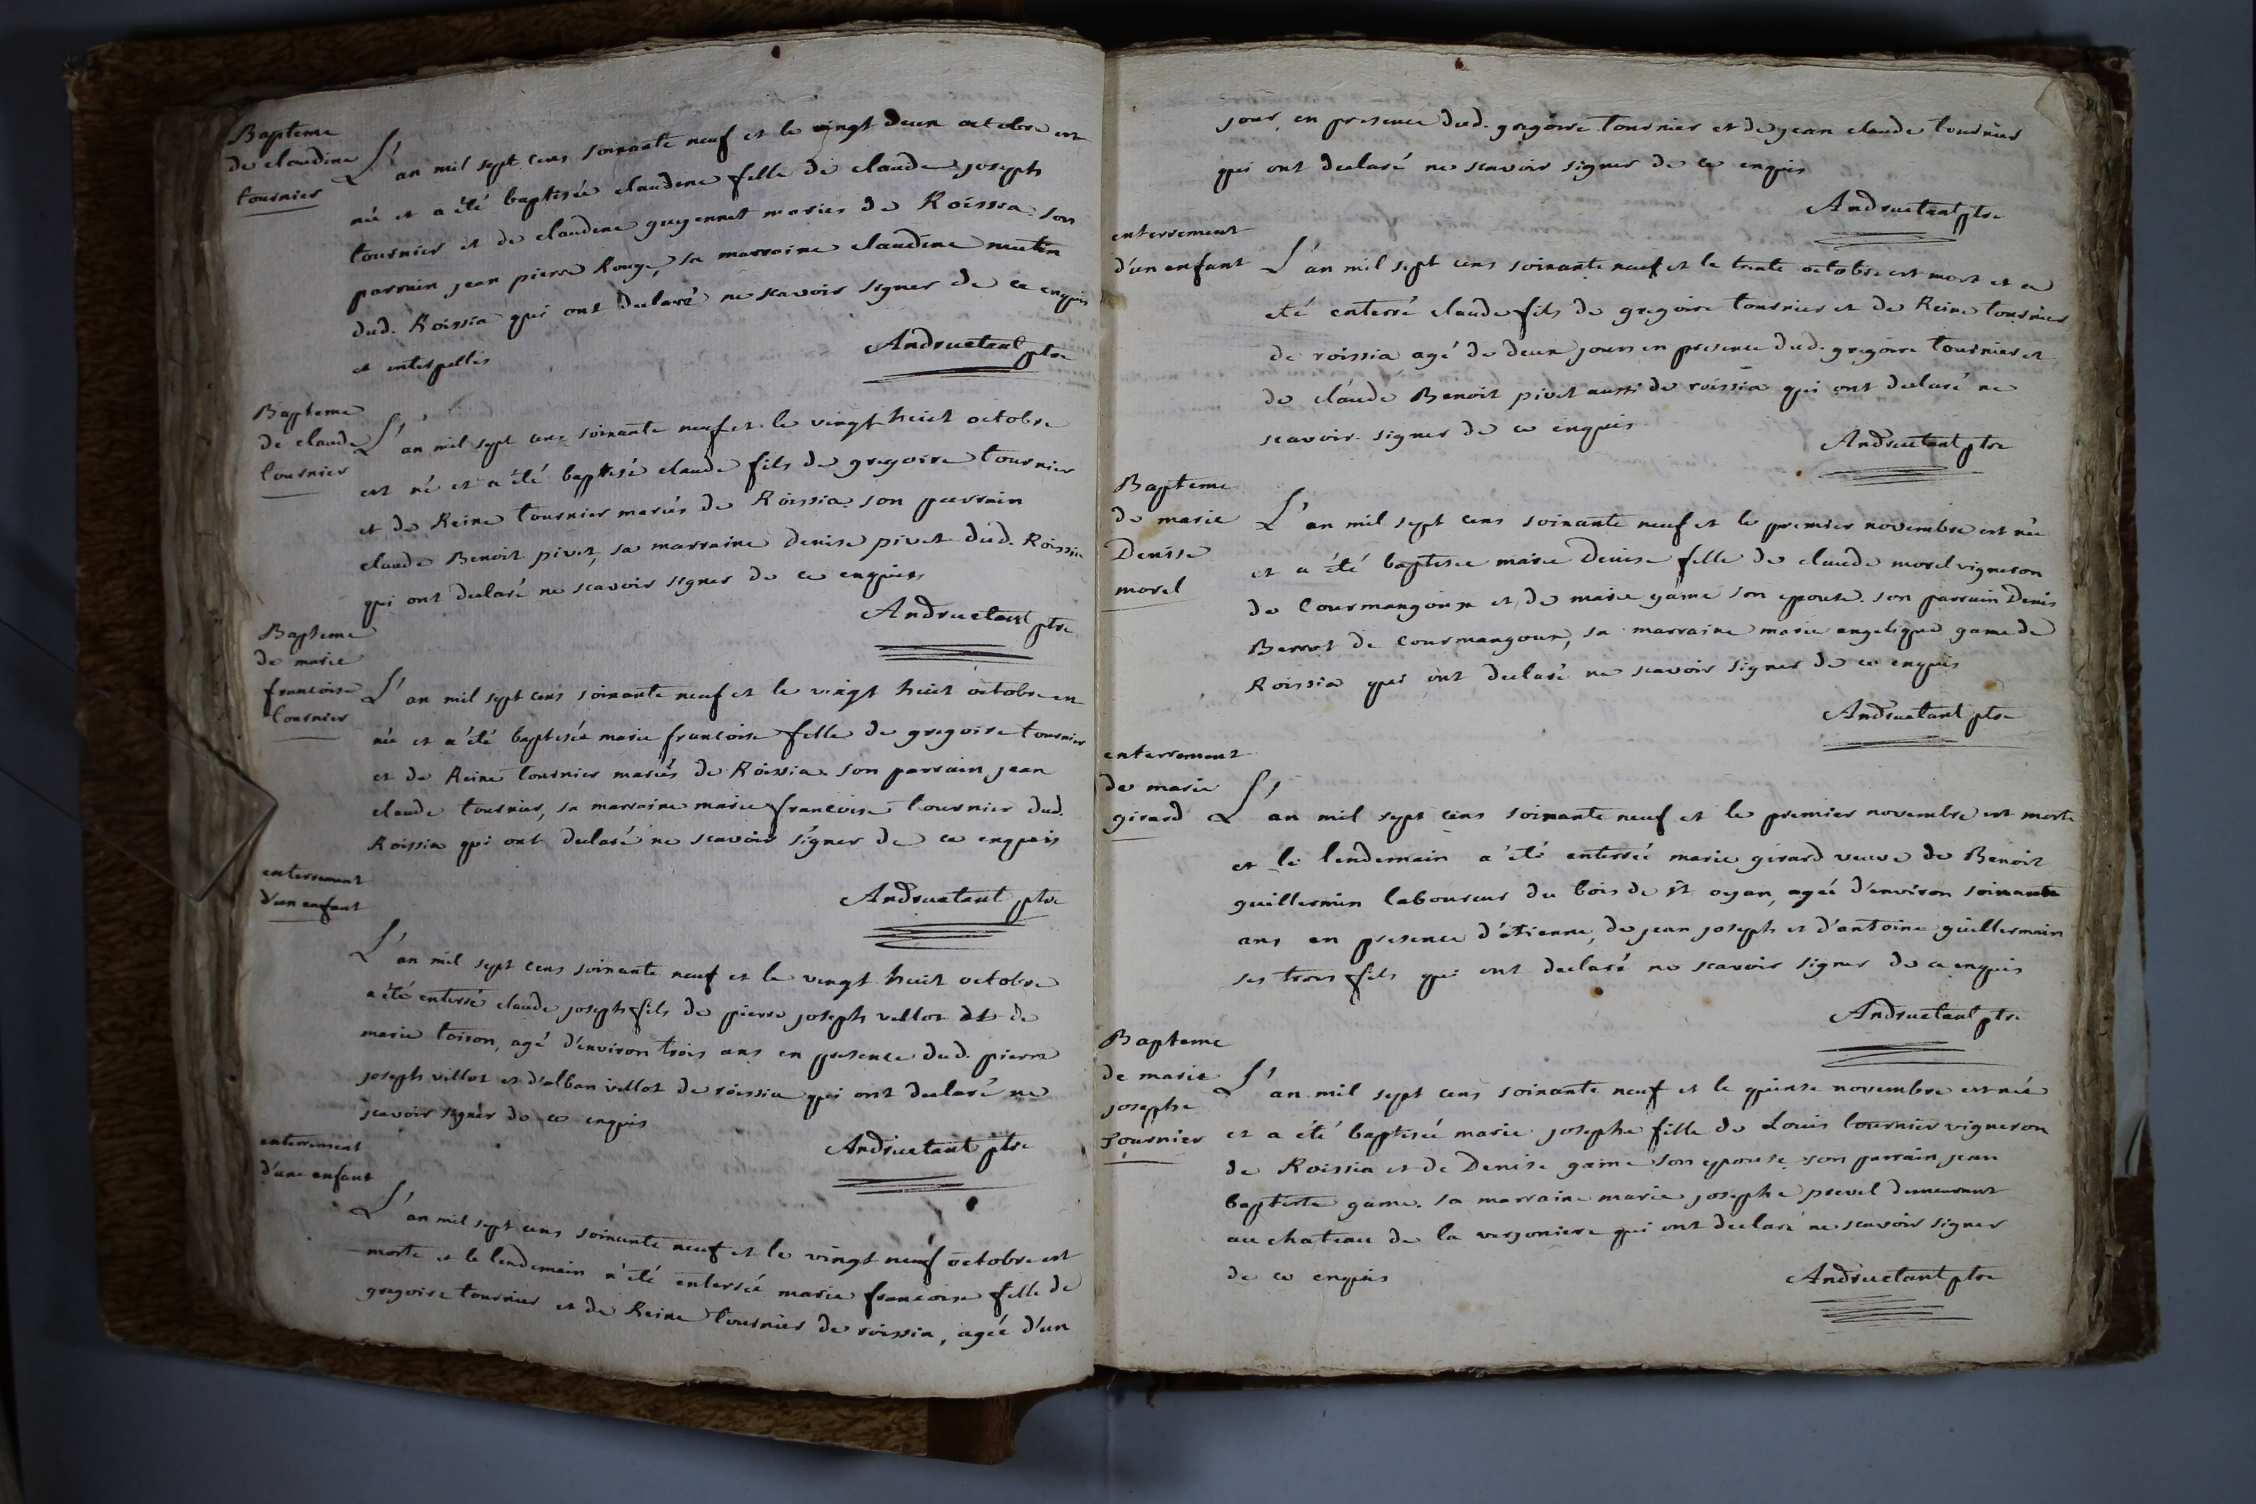 Bapteme
de claudine
tournier
L'an mil sept cens soixante neuf et le vingt deux octobre est
née et a été baptisée claudine fille de claude joseph
tournier et de claudine guyennet mariés de Roissia. son
parrain jean pierre Rouge, sa marraine claudine mutin
dud. Roissia qui ont declaré ne scavoir signer de ce enquis
et interpellés
Andruetant ptre
Bapteme
de claude
tournier
L'an mil sept cens soixante neuf et le vingt huit octobre
est né et a été baptisé claude fils de gregoire tournier
et de Reine tournier mariés de Roissia. son parrain
claude Benoit pivet, sa marraine denise pivet dud. Roissia
qui ont declaré ne scavoir signer de ce enquis
Andruetant ptre
Bapteme
de marie
francoise
tournier
L'an mil sept cens soixante neuf et le vingt huit octobre est
née et a été baptisée marie francoise fille de gregoire tournier
et de Reine tournier mariés de Roissia. son parrain jean
claude tournier, sa marraine marie francoise tournier dud.
Roissia qui ont declaré ne scavoir signer de ce enquis
Andruetant ptre
enterrement
d'un enfant
L'an mil sept cens soixante neuf et le vingt huit octobre
a été enterré claude joseph fils de pierre joseph villot et de
marie loison, agé d'environ trois ans en presence dud. pierre
joseph villot et d'alban villot de roissia qui ont declaré ne
scavoir signer de ce enquis
Andruetant ptre
enterrement
d'une enfant
L'an mil sept cens soixante neuf et le vingt neuf octobre est
morte et le lendemain a été enterrée marie francoise fille de
gregoire tournier et de Reine tournier de roissia, agée d'un
jour, en presence dud. gregoire tournier et de jean claude tournier
qui ont declaré ne scavoir signer de ce enquis
Andruetant ptre
enterrement
d'un enfant
L'an mil sept cens soixante neuf et le trente octobre est mort et a
été enterré claude fils de gregoire tournier et de Reine tournier
de roissia agé de deux jours en presence dud. gregoire tournier et
de claude Benoit pivet aussi de roissia qui ont declaré ne
scavoir signer de ce enquis
Andruetant ptre
Bapteme
de marie
Denise
morel
L'an mil sept cens soixante neuf et le premier novembre est née
et a été baptisée marie Denise fille de claude morel vigneron
de Courmangoux et de marie game son epouse. son parrain Denis
de Courmangoux, sa marraine marie angelique game de
Roissia qui ont declaré ne scavoir signer de ce enquis
Andruetant ptre
enterrement
de marie
girard
L'an mil sept cens soixante neuf et le premier novembre est morte
et le lendemain a été enterrée marie girard veuve de Benoit
guillermin laboureur du bois de st oyan, agée d'environ soixante
ans en presence d'étienne, de jean joseph et d'antoine guillermin
ses trois fils qui ont declaré ne scavoir signer de ce enquis
Andruetant ptre
Bapteme
de marie
josephe
Tournier
L'an mil sept cens soixante neuf et le quinze novembre est née
et a été baptisée marie josephe fille de Louis tournier vigneron
de Roissia et de Denise game son epouse. son parrain jean
baptiste game. sa marraine marie josephe prevel demeurant
au chateau de la verjoniere qui ont declaré ne scavoir signer
de ce enquis
Andruetant ptre